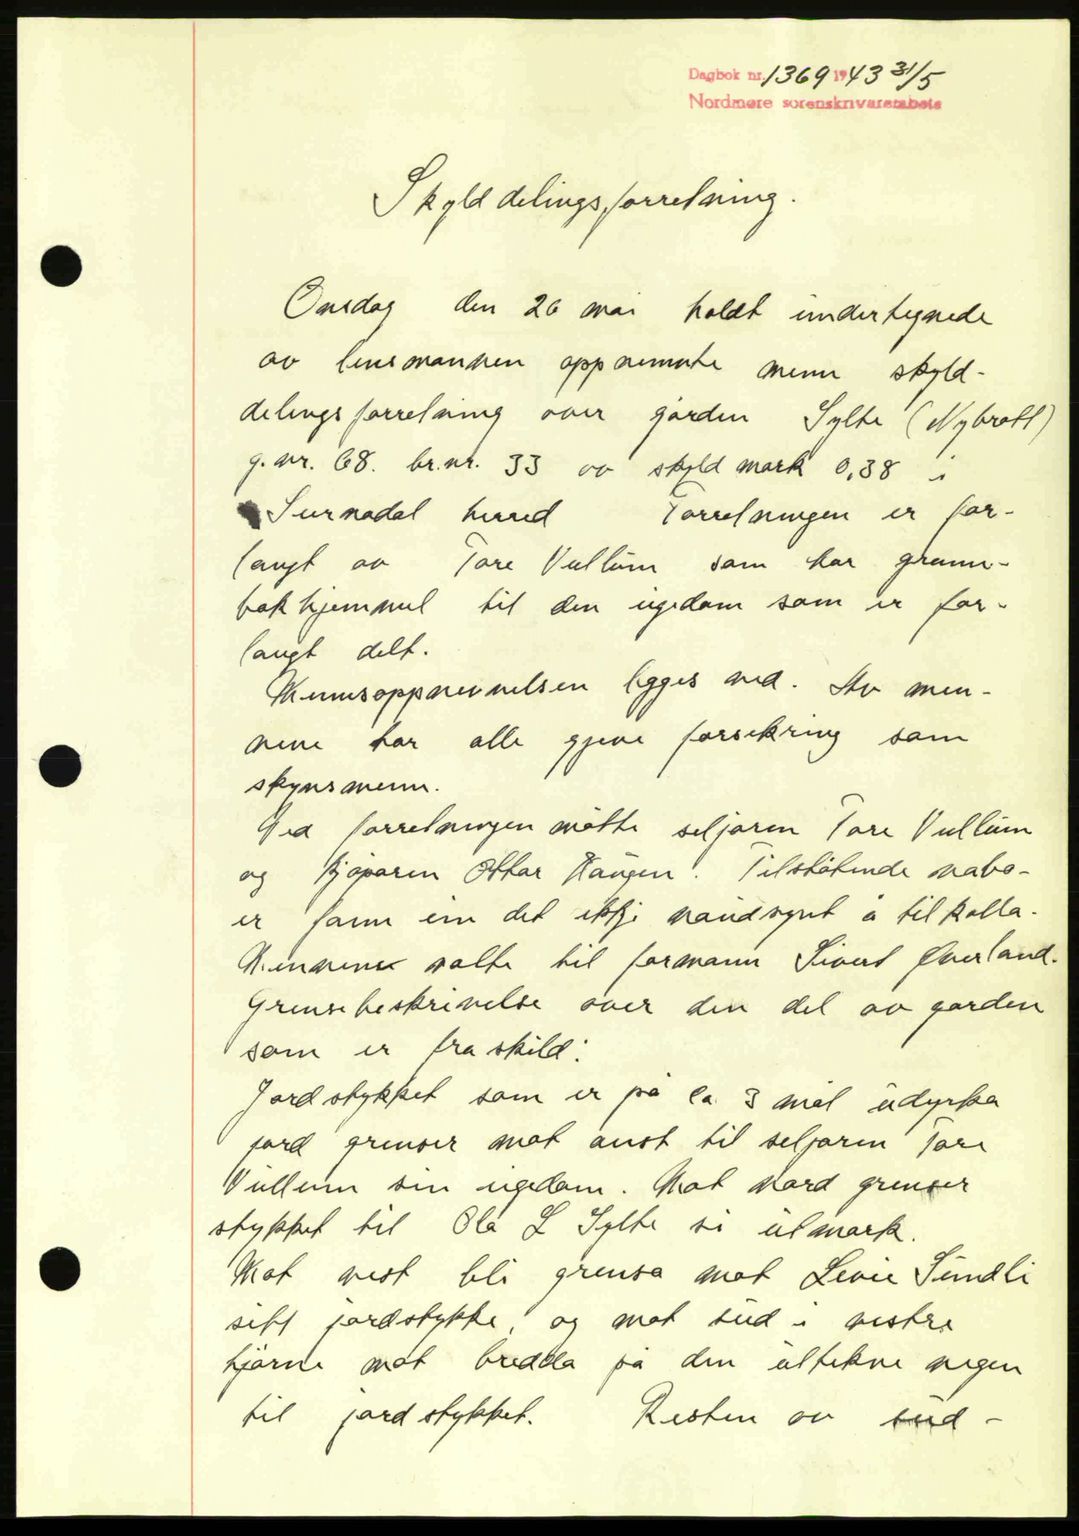 Dagbok nr. 1369 1943 31/5
Nordmøre sorenskriverembete
Skylddelingsforretning.
Onsdag den 26 mai holdt undertegnede
av lensmannen oppnemnte menn skyld-
delingsforretning over gården Sylte (Nybrott)
g.nr. 68. br.nr. 33 av skyld mark 0,38 i
Surnadal herred Forretningen er for-
langt av Tore Vullum som har grunn-
bokhjemmel til den eigedom som er for-
langt delt.
Mennsoppnevnelsen legges ved. Av men-
nene har alle gjeve forsikring som
skynsmenn.
Ved forretningen møtte seljaren Tore Vullum
og kjøparen Ottar Haugen. Tilstøtende nabo-
er fann ein det ikkje naudsynt å tilkalla.
Mennene valte til formann Sivert Øverland.
Grensebeskrivelse over den del av garden
som er fraskild:
Jordstykket som er på ca 3 mål udyrka
jord grenser mot aust til seljaren Tore
Vullum sin eigedom. Mot nord grenser
stykket til Ola L Sylte si utmark.
Mot vest bli grensa mot Levie Sundli
sitt jordstykke, og mot sud i vestre
hjørne mot bredda på den uttekne vegen
til jordstykket. Resten av sud-